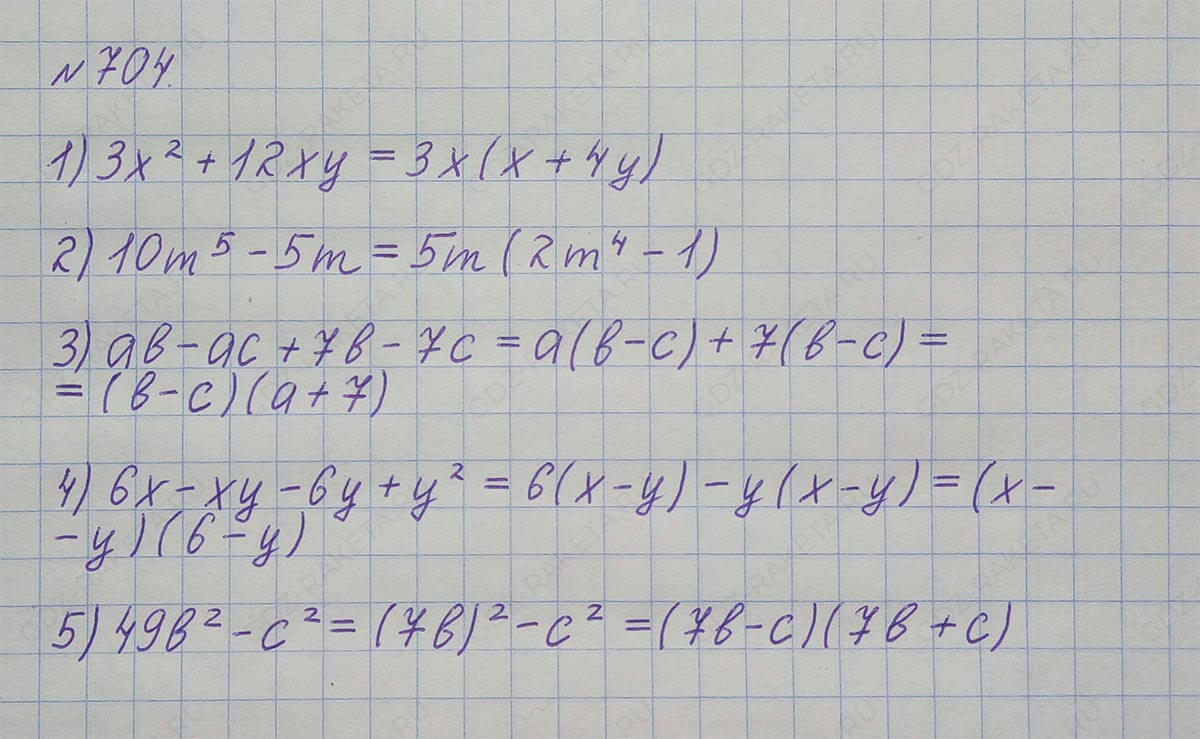 №704.
1) 3x² + 12xy = 3x(x + 4y)
2) 10m⁵ - 5m = 5m(2m⁴ - 1)
3) ab - ac + 7b - 7c = a(b - c) + 7(b - c) =
= (b - c)(a + 7)
4) 6x - xy - 6y + y² = 6(x - y) - y(x - y) = (x -
- y)(6 - y)
5) 49b² - c² = (7b)² - c² = (7b - c)(7b + c)
GDZ-RAKETA.RU